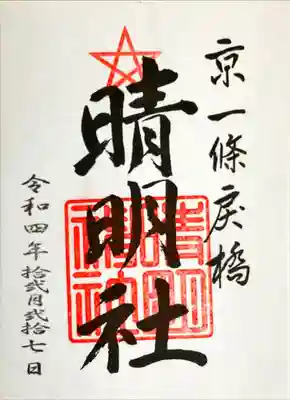 京一條戻橋
晴明社
令和四年拾弐月弐拾七日